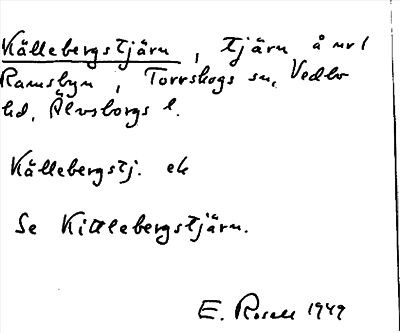 Källebergstjärn, tjärn å nr 1
Ramsbyn, Torrskogs sn, Vedbo
hd, Älvsborgs l.
Källebergstj. ek
Se Kittlebergstjärn.
E. Rosell 1949